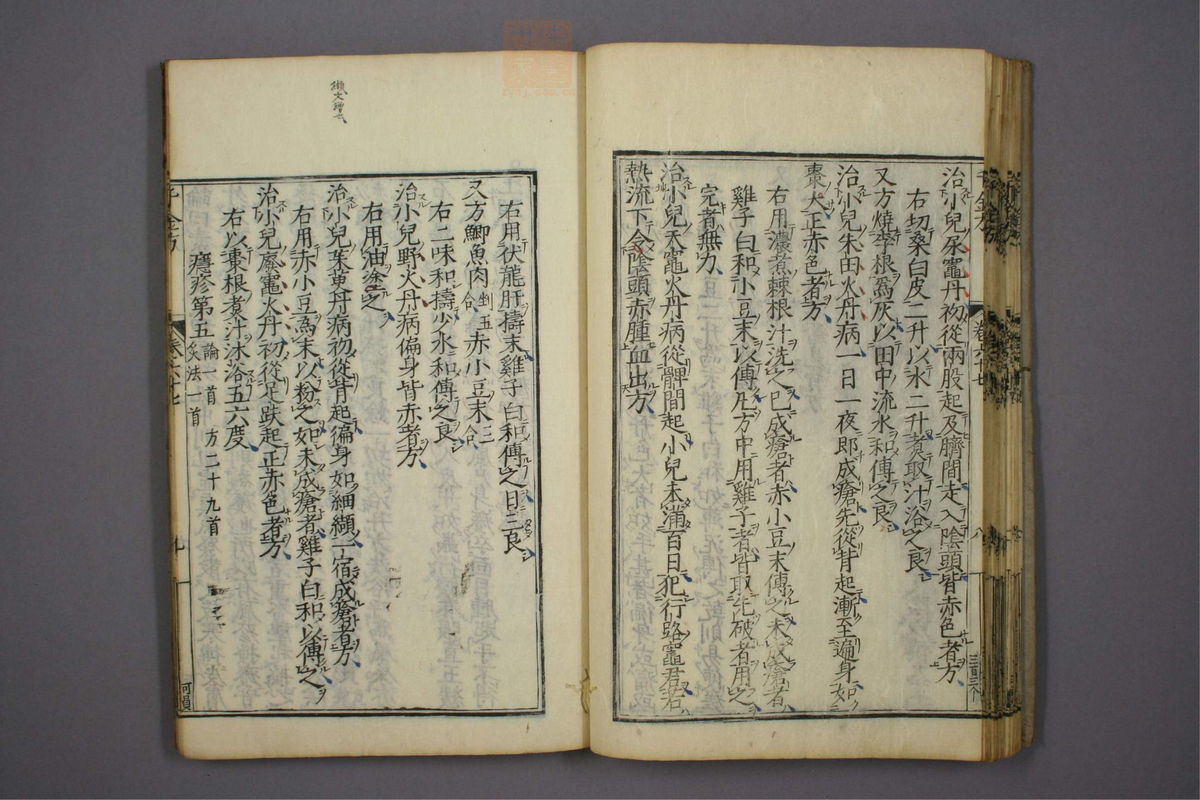 治小兒尿竈丹初從兩股起及臍間走入陰頭皆赤色者方
右切桑白皮二升以水二升煮取汁浴之良
又方燒李根爲灰以田中流水和傅之良
治小兒朱田火丹病一日一夜即成瘡先從背起漸至遍身如
棗大正赤色者方
右用濃煮棘根汁洗之已成瘡者赤小豆末傅之未成瘡者
雞子白和小豆末以傅凡方中用雞子者皆取先破者用之
完者無力
治小兒天竈火丹病從髀間起小兒未滿百日犯行路竈君若
熱流下令陰頭赤腫血出方
右用伏龍肝擣末雞子白和傅之日三良
又方鯽魚肉剉五合赤小豆末三合
右二味和擣少水和傅之良
治小兒野火丹病徧身皆赤者方
右用油塗之
治小兒茱萸丹病初從背起徧身如細纈一宿成瘡者方
右用赤小豆為末以粉之如未成瘡者雞子白和以傅之
治小兒廢竈火丹初從足趺起正赤色者方
右以棗根煮汁沐浴五六度
癮疹第五 論一首 方二十九首 灸法一首